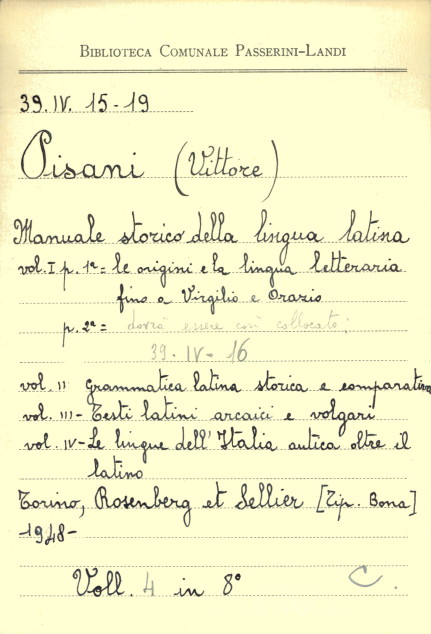 BIBLIOTECA COMUNALE PASSERINI-LANDI
39. IV. 15-19
Pisani (Vittore)
Manuale storico della lingua latina
vol. I p. 1ª = le origini e la lingua letteraria
fino a Virgilio e Orazio
p. 2ª = dovrà essere così collocato:
39. IV - 16
vol. II Grammatica latina storica e comparativa
vol. III - Testi latini arcaici e volgari
vol. IV - Le lingue dell'Italia antica oltre il
latino
Torino, Rosenberg et Sellier [Tip. Bona]
-1948-
Voll. 4 in 8° C.